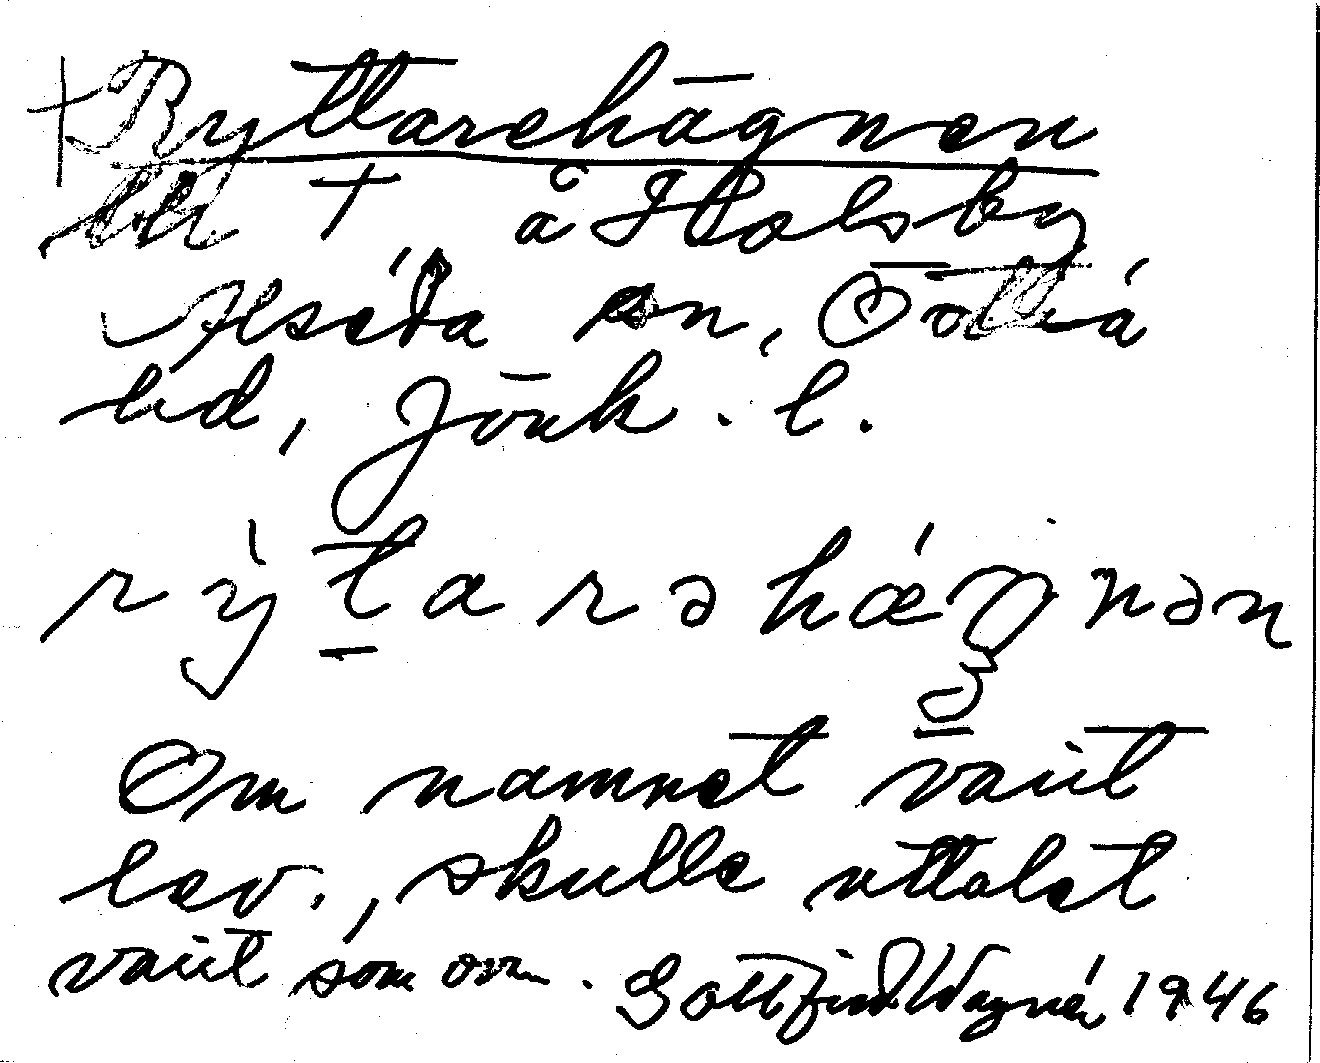 † Ryttarehägnen
† å Holsby
Alseda sn, Östra
hd, Jönk. l.
rỳtarəhǽgnən
Om namnet varit
lev., skulle uttalet
varit som ovan. Gottfrid Wagnér 1946